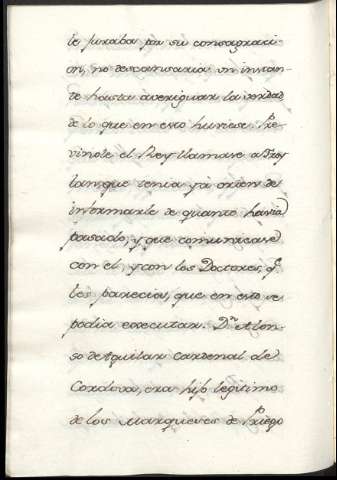 le juraba por su consagraci-
on, no descansaria un instan-
te hasta averiguar la verdad
de lo que en esto huviese. Pre-
vinole el Rey llamase a Froy-
lan que tenia ya orden de
informarle de quanto havia
pasado, y que comunicase
con el, y con los Doctores, q.e
les parecia, que en esto se
podia executar. D.n Alon-
so de Aguilar Cardenal de
Cordova, era hijo legitimo
de los Marqueses de Priego